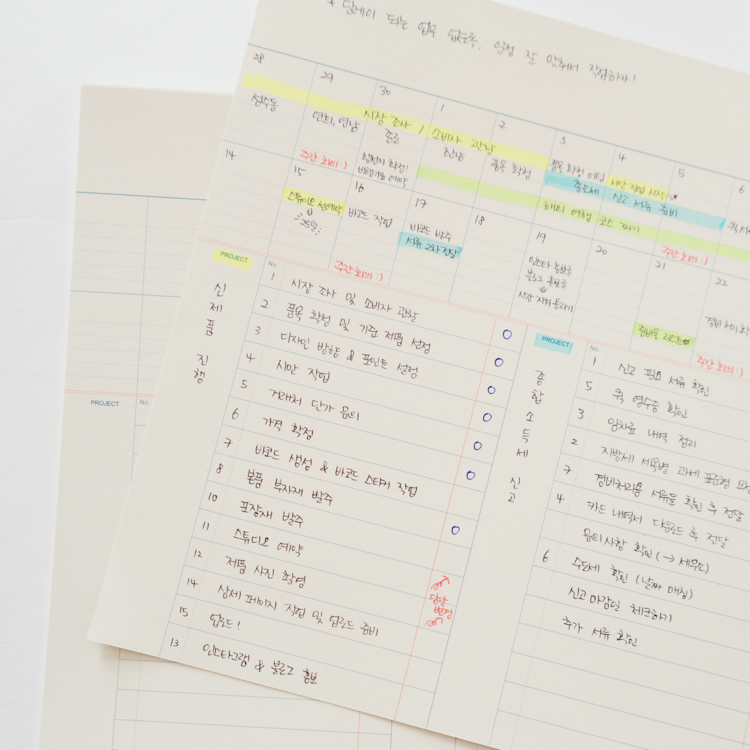 * 딜레이 되는 업무 없도록, 일정 잘 안배해서 작업하자!
28 29 30 1 2 3 4 5 6
시장 조사 / 소비자 관찰
성수동 연희, 연남 종로 한남 품목 확정
품목 확정 미팅 시안 작업 시작
종소세 신고 서류 준비
주간 회의 :)
해외 여행 코스 짜기
14 15 16 17 18 19 20 21 22
스튜디오 선예약
25일
바코드 작업
바코드 발주
서류 2차 전달
인스타 홍보글
블로그 홍보글
시간 지켜 올리기
주간 회의 :)
준비물 리스트
경비 처리
주간 회의 :)
주간 회의 :)
PROJECT No.
신제품 진행
1 시장 조사 및 소비자 관찰
2 품목 확정 및 기준 제품 선정
3 디자인 방향 & 포인트 선정
4 시안 작업
5 거래처 단가 문의
6 가격 확정
7 바코드 생성 & 바코드 스티커 작업
8 본품 부자재 발주
10 포장재 발주
11 스튜디오 예약
12 제품 사진 촬영
14 상세 페이지 작업 및 업로드 준비
15 업로드!
13 인스타그램 & 블로그 홍보
일정 변경
PROJECT No.
종합소득세 신고
1 신고 필요 서류 확인
5 퀵 영수증 확인
3 임차료 내역 정리
2 지방세 세목별 과세 표준명
7 경비처리용 서류들 확인 후 전달
4 카드 내역서 다운로드 후 전달
문의사항 확인 (→ 세무요)
6 수도세 확인 (날짜 매칭)
신고 마감일 체크하기
추가 서류 확인
PROJECT No.